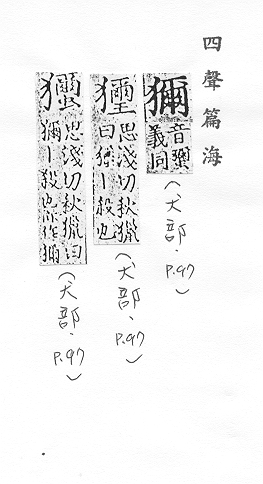 四聲篇海
獮
音
義同
(犬部,P.97)
思淺切秋獵
曰丨殺也
(犬部,P.97)
思淺切秋獵曰
丨殺也亦作
(犬部,P.97)